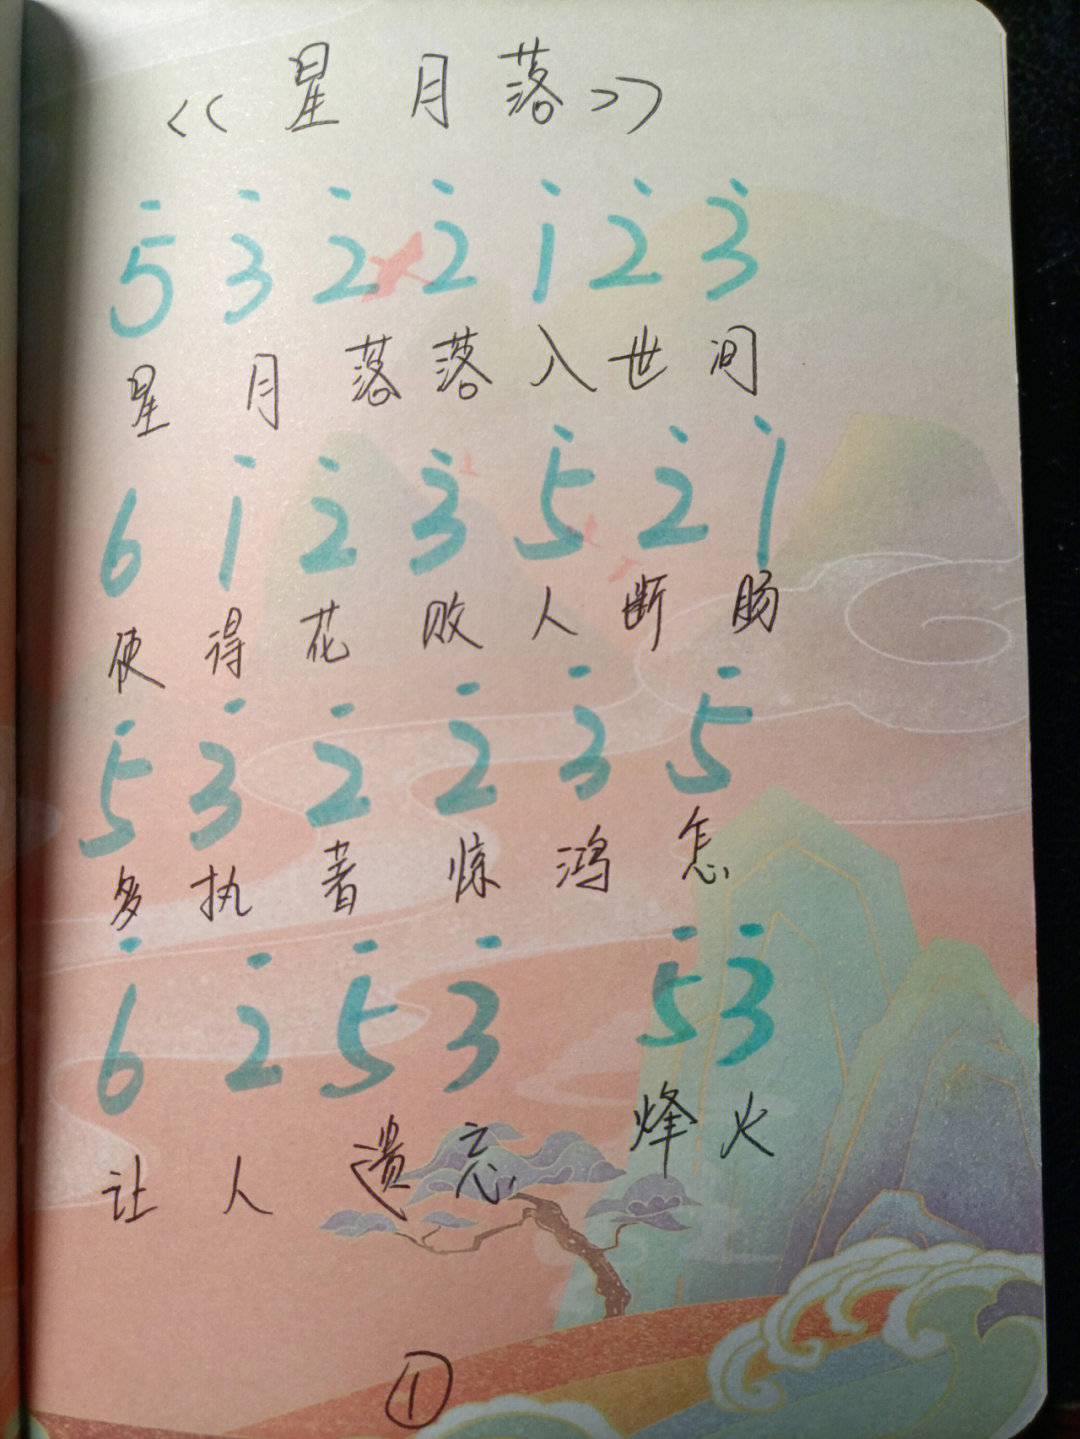 《星月落》
5̇ 3̇ 2̇ 2̇ 1̇ 2̇ 3̇
星月落落入世间
6 1̇ 2̇ 3̇ 5̇ 2̇ 1̇
使得花败人断肠
5̇ 3̇ 2̇ 2̇ 3̇ 5̇
多执着惊鸿怎
6̇ 2̇ 5̇ 3̇ 5̇ 3̇
让人遗忘 烽火
①